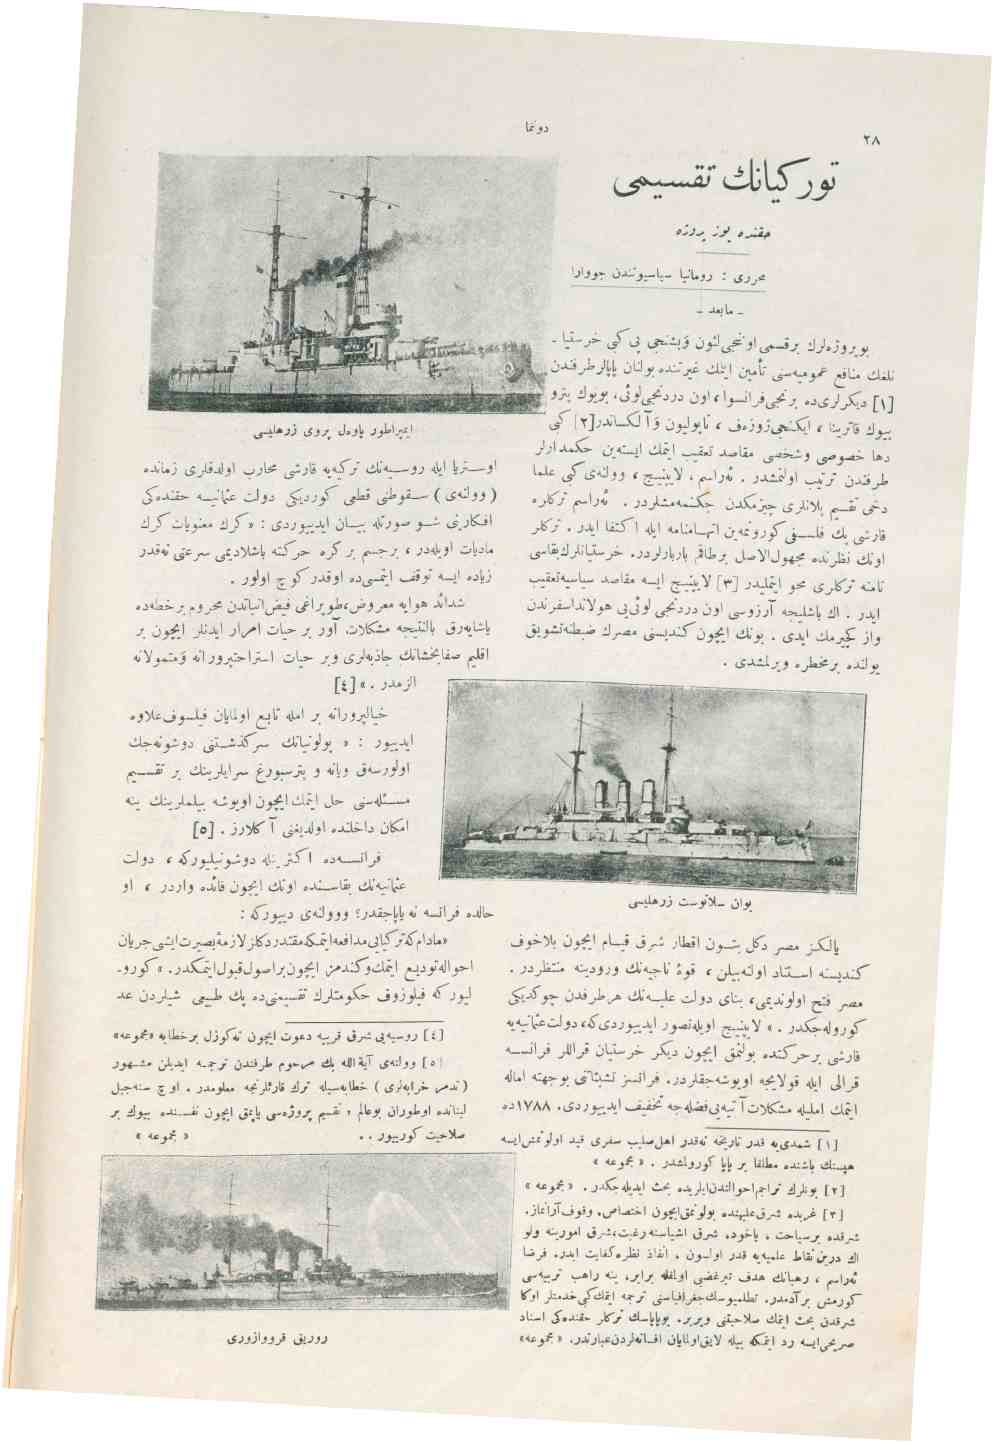 دونما
٢٨
توركيانك تقسيمى
حقنده يوز پروژه
محررى : رومانيا سياسيوننـدن جووارا
ـ مابعد ـ
بوپروژه‌لرك برقسمى اونجى لئون وبشنجى پى كى خرستيا ـ
نلغك منافع عموميه‌سنى تأمين ايتمك غيرتنده بولنان پاپالرطرفندن
[١] ديكرلرى‌ده برنجى‌فرانسوا ، اون دردنجى‌لوئى، بويوك پترو
بيوك قاترينا ، ايكنجى‌ژوزه‌ف ، ناپوليون و آلكساندر[٢] كى
دها خصوصى وشخصى مقاصد تعقيب ايتمك ايسته‌ين حكمدارلر
طرفندن ترتيب اولنمشدر . ئه‌راسم ، لايبنيج ، وولته‌ى كى علما
دخى تقسيم پلانلرى چيزمكدن چكنمه‌مشلردر . ئه‌راسم تركلره
قارشى پك فلسفى كورونمه‌ين اتهامنامه ايله اكتفا ايدر . تركلر
اونك نظرنده مجهول‌الاصل برطاقم باربارلردر. خرستيانلرك‌بقاسى
نامنه تركلرى محو ايتمليدر [٣] لايبنيج ايسه مقاصد سياسيه‌تعقيب
ايدر . اك باشليجه آرزوسى اون دردنجى لوئى‌يى هولانداسفرندن
واز كچيرمك ايدى . بونك ايچون كنديسنى مصرك ضبطنه‌تشويق
يولنده برمخطره ويرلمشدى .
بوان سلاتوست زرهليسى
يالكز مصر دكل بتون اقطار شرق قيام ايچون بلاخوف
كنديسنه استناد اولنه‌بيلن ، قوۀ ناجيه‌نك ورودينه منتظردر .
مصر فتح اولونديمى، بناى دولت عليه‌نك هرطرفدن چوكديكى
كوروله‌جكدر . » لايبنيج اويله‌تصور ايدييوردى‌كه، دولت‌عثمانيه‌يه
قارشى برحركتده بولنمق ايچون ديكر خرستيان قراللر فرانسه
قرالى ايله قولايجه اويوشه‌جقلردر. فرانسز تشبثاتنى بوجهته اماله
ايتمك امليله مشكلات آتيه‌يى‌فضله‌جه تخفيف ايدييوردى. ١٧٨٨ده
[١] شمدى‌يه قدر تاريخه نه‌قدر اهل‌صليب سفرى قيد اولونمش‌ايسه
هپسنك باشنده مطلقا بر پاپا كورولمشدر . « مجموعه »
[٢] بونلرك تراجم‌احوالندن‌ايلريده بحث ايديله‌جكدر . « مجموعه »
[٣] غربده شرق‌عليهنده بولونمق‌ايچون اختصاص، وقوف‌آرانماز.
شرقده برسياحت ، ياخود، شرق اشياسنه‌رغبت، شرق امورينه ولو
اك درين نقاط علميه‌يه قدر اولسون ، انفاذ نظره‌كفايت ايدر. فرضا
ئه‌راسم ، رهبانك هدف تبرغضى اولمغله برابر، ينه راهب تربيه‌سى
كورمش برآدمدر. بطلميوسك‌جغرافياسنى ترجمه ايتمك‌كى‌خدمتلر اوكا
شرقدن بحث ايتمك صلاحيتنى ويرير. بوپاپاسك تركلر حقنده‌كى اسناد
صريحى‌ايسه رد ايتمكه بيله لايق‌اولمايان افسانه‌لردن‌عبارتدر. « مجموعه »
ايمپراطور پاوه‌ل پروى زرهليسى
اوستريا ايله روسيه‌نك تركيه‌يه قارشى محارب اولدقلرى زمانده
( وولته‌ى ) سقوطنى قطعى كورديكى دولت عثمانيه حقنده‌كى
افكارينى شو صورتله بيان ايدييوردى : « كرك معنويات كرك
ماديات اويله‌در ، برجسم بر كره حركته باشلاديمى سرعتى نه‌قدر
زياده ايسه توقف ايتمسى‌ده اوقدر كوچ اولور .
شدائد هوايه معروض، طوپراغى فيض‌انباتدن محروم برخطه‌ده
ياشايه‌رق بالنتيجه مشكلات آور بر حيات امرار ايدنلر ايچون بر
اقليم صفابخشانك جاذبه‌لرى وبر حيات استراحتپرورانه ومتمولانه
الزمدر . » [٤]
خيالپرورانه بر امله تابع اولمايان فيلسوف‌علاوه
ايدييور : « پولونيانك سرگذشتنى دوشونه‌جك
اولورسه‌ق ويانه و پترسبورغ سرايلرينك بر تقسيم
مسئله‌سنى حل ايتمك ايچون اويوشه بيلملرينك ينه
امكان داخلنده اولديغنى آكلارز . [٥]
فرانسه‌ده اكثريتله دوشونيليوركه ، دولت
عثمانيه‌نك بقاسنده اونك ايچون فائده واردر ، او
حالده فرانسه نه ياپاجقدر؟ وووالته‌ى دييوركه :
«مادام‌كه‌تركيايى‌مدافعه‌ايتمكه‌مقتدردكلز لازمۀبصيرت‌ايشى‌جريان
احواله‌توديع ايتمك‌وكندمز ايچون‌براصول‌قبول‌ايتمكدر. » كورو-
ليور كه فيلوزوف حكومتلرك تقسيمنى‌ده پك طبيعى شيلردن عد
[٤] روسيه‌يى شرق قريبه دعوت ايچون نه‌كوزل برخطابه «مجموعه»
[٥] وولته‌ى آيةالله بك مرحوم طرفندن ترجمه ايديلن مشهور
( تدمر خرابه‌لرى ) خطابه‌سيله ترك قارئلرنجه معلومدر . اوچ سنه‌جبل
لبنانده اوطوران بوعالم ، تقسيم پروژه‌سى ياپمق ايچون نفسنده بيوك بر
صلاحيت كورييور . . « مجموعه »
روريق قرووازورى